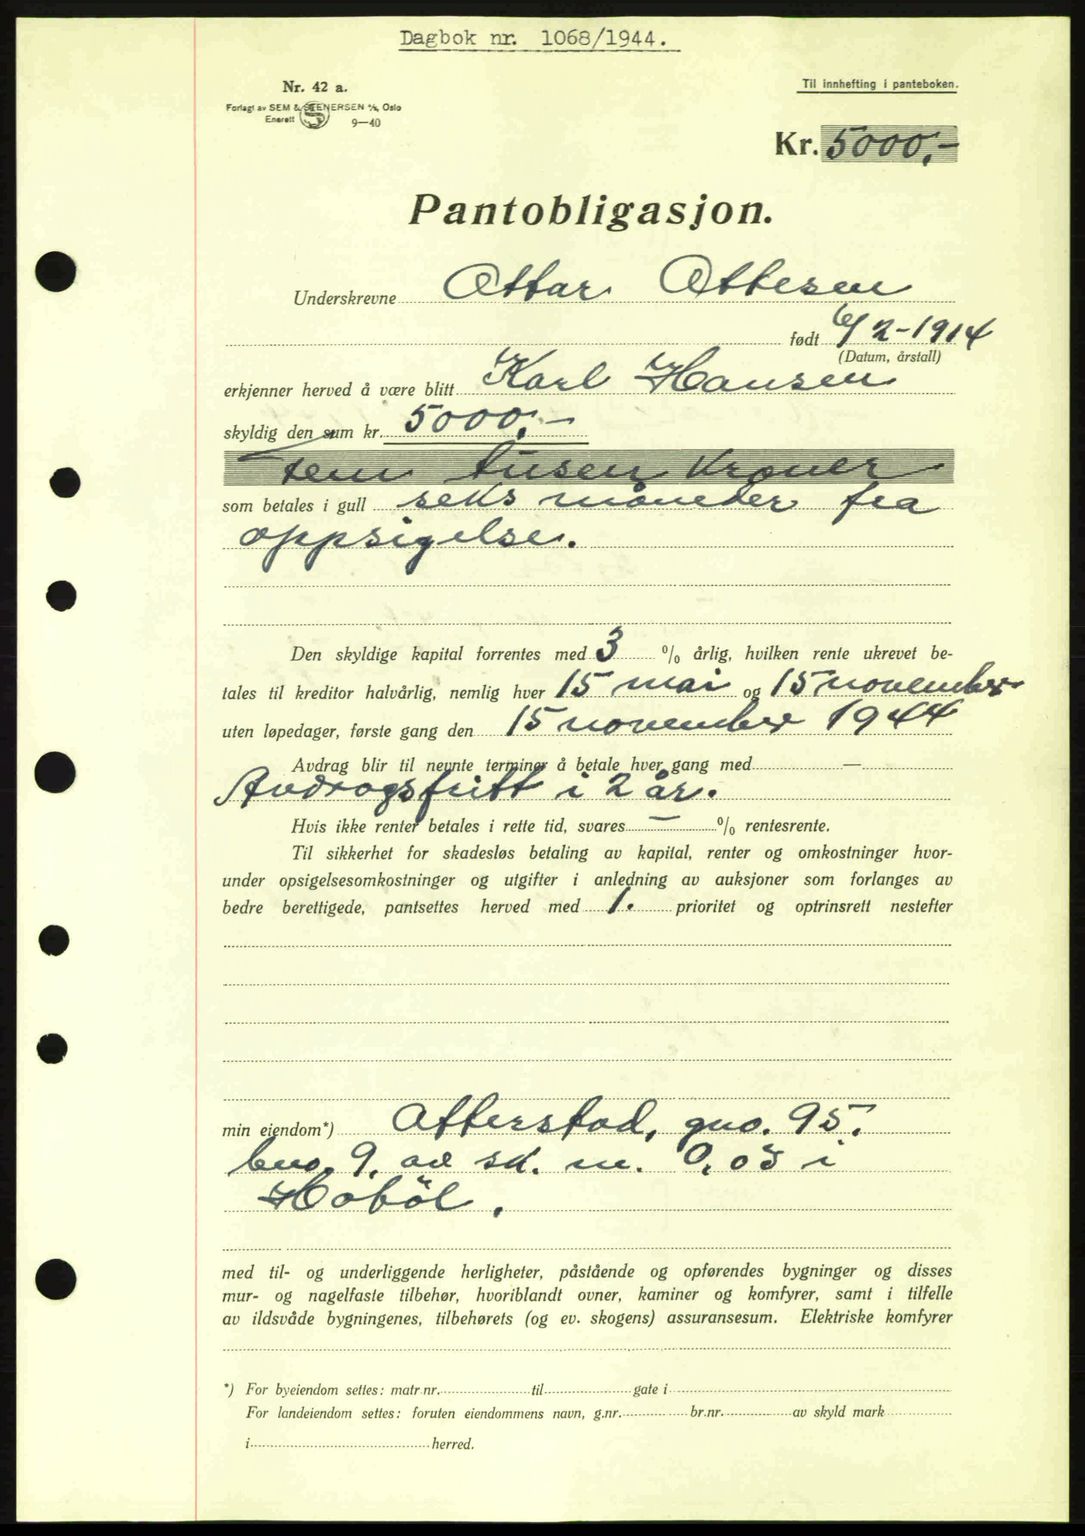 Dagbok nr. 1068/1944.
Nr. 42 a.
Til innhefting i panteboken.
Forlagt av SEM & STENERSEN A/S, Oslo
Enerett 9—40
Kr. 5000,-
Pantobligasjon.
Underskrevne Ottar Ottesen
født 6/2-1914
(Datum, årstall)
erkjenner herved å være blitt Karl Hansen
skyldig den sum kr. 5000,-
Fem tusen Kroner
som betales i gull seks måneder fra
oppsigelse.
Den skyldige kapital forrentes med 3 % årlig, hvilken rente ukrevet be-
tales til kreditor halvårlig, nemlig hver 15 mai og 15 november
uten løpedager, første gang den 15 november 1944
Avdrag blir til nevnte terminer å betale hver gang med —
Avdragsfritt i 2 år.
Hvis ikke renter betales i rette tid, svares — % rentesrente.
Til sikkerhet for skadesløs betaling av kapital, renter og omkostninger hvor-
under opsigelsesomkostninger og utgifter i anledning av auksjoner som forlanges av
bedre berettigede, pantsettes herved med 1. prioritet og optrinsrett nestefter
min eiendom*) Atterstad, gno. 95,
bno. 9, av sk. m. 0,03 i
Hobøl.
med til- og underliggende herligheter, påstående og opførendes bygninger og disses
mur- og nagelfaste tilbehør, hvoriblandt ovner, kaminer og komfyrer, samt i tilfelle
av ildsvåde bygningenes, tilbehørets (og ev. skogens) assuransesum. Elektriske komfyrer
*) For byeiendom settes: matr.nr. til gate i
For landeiendom settes: foruten eiendommens navn, g.nr. br.nr. av skyld mark
i herred.